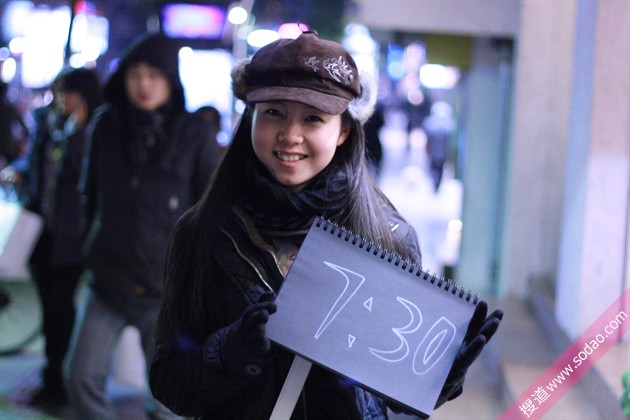 7:30
搜道 www.sodao.com